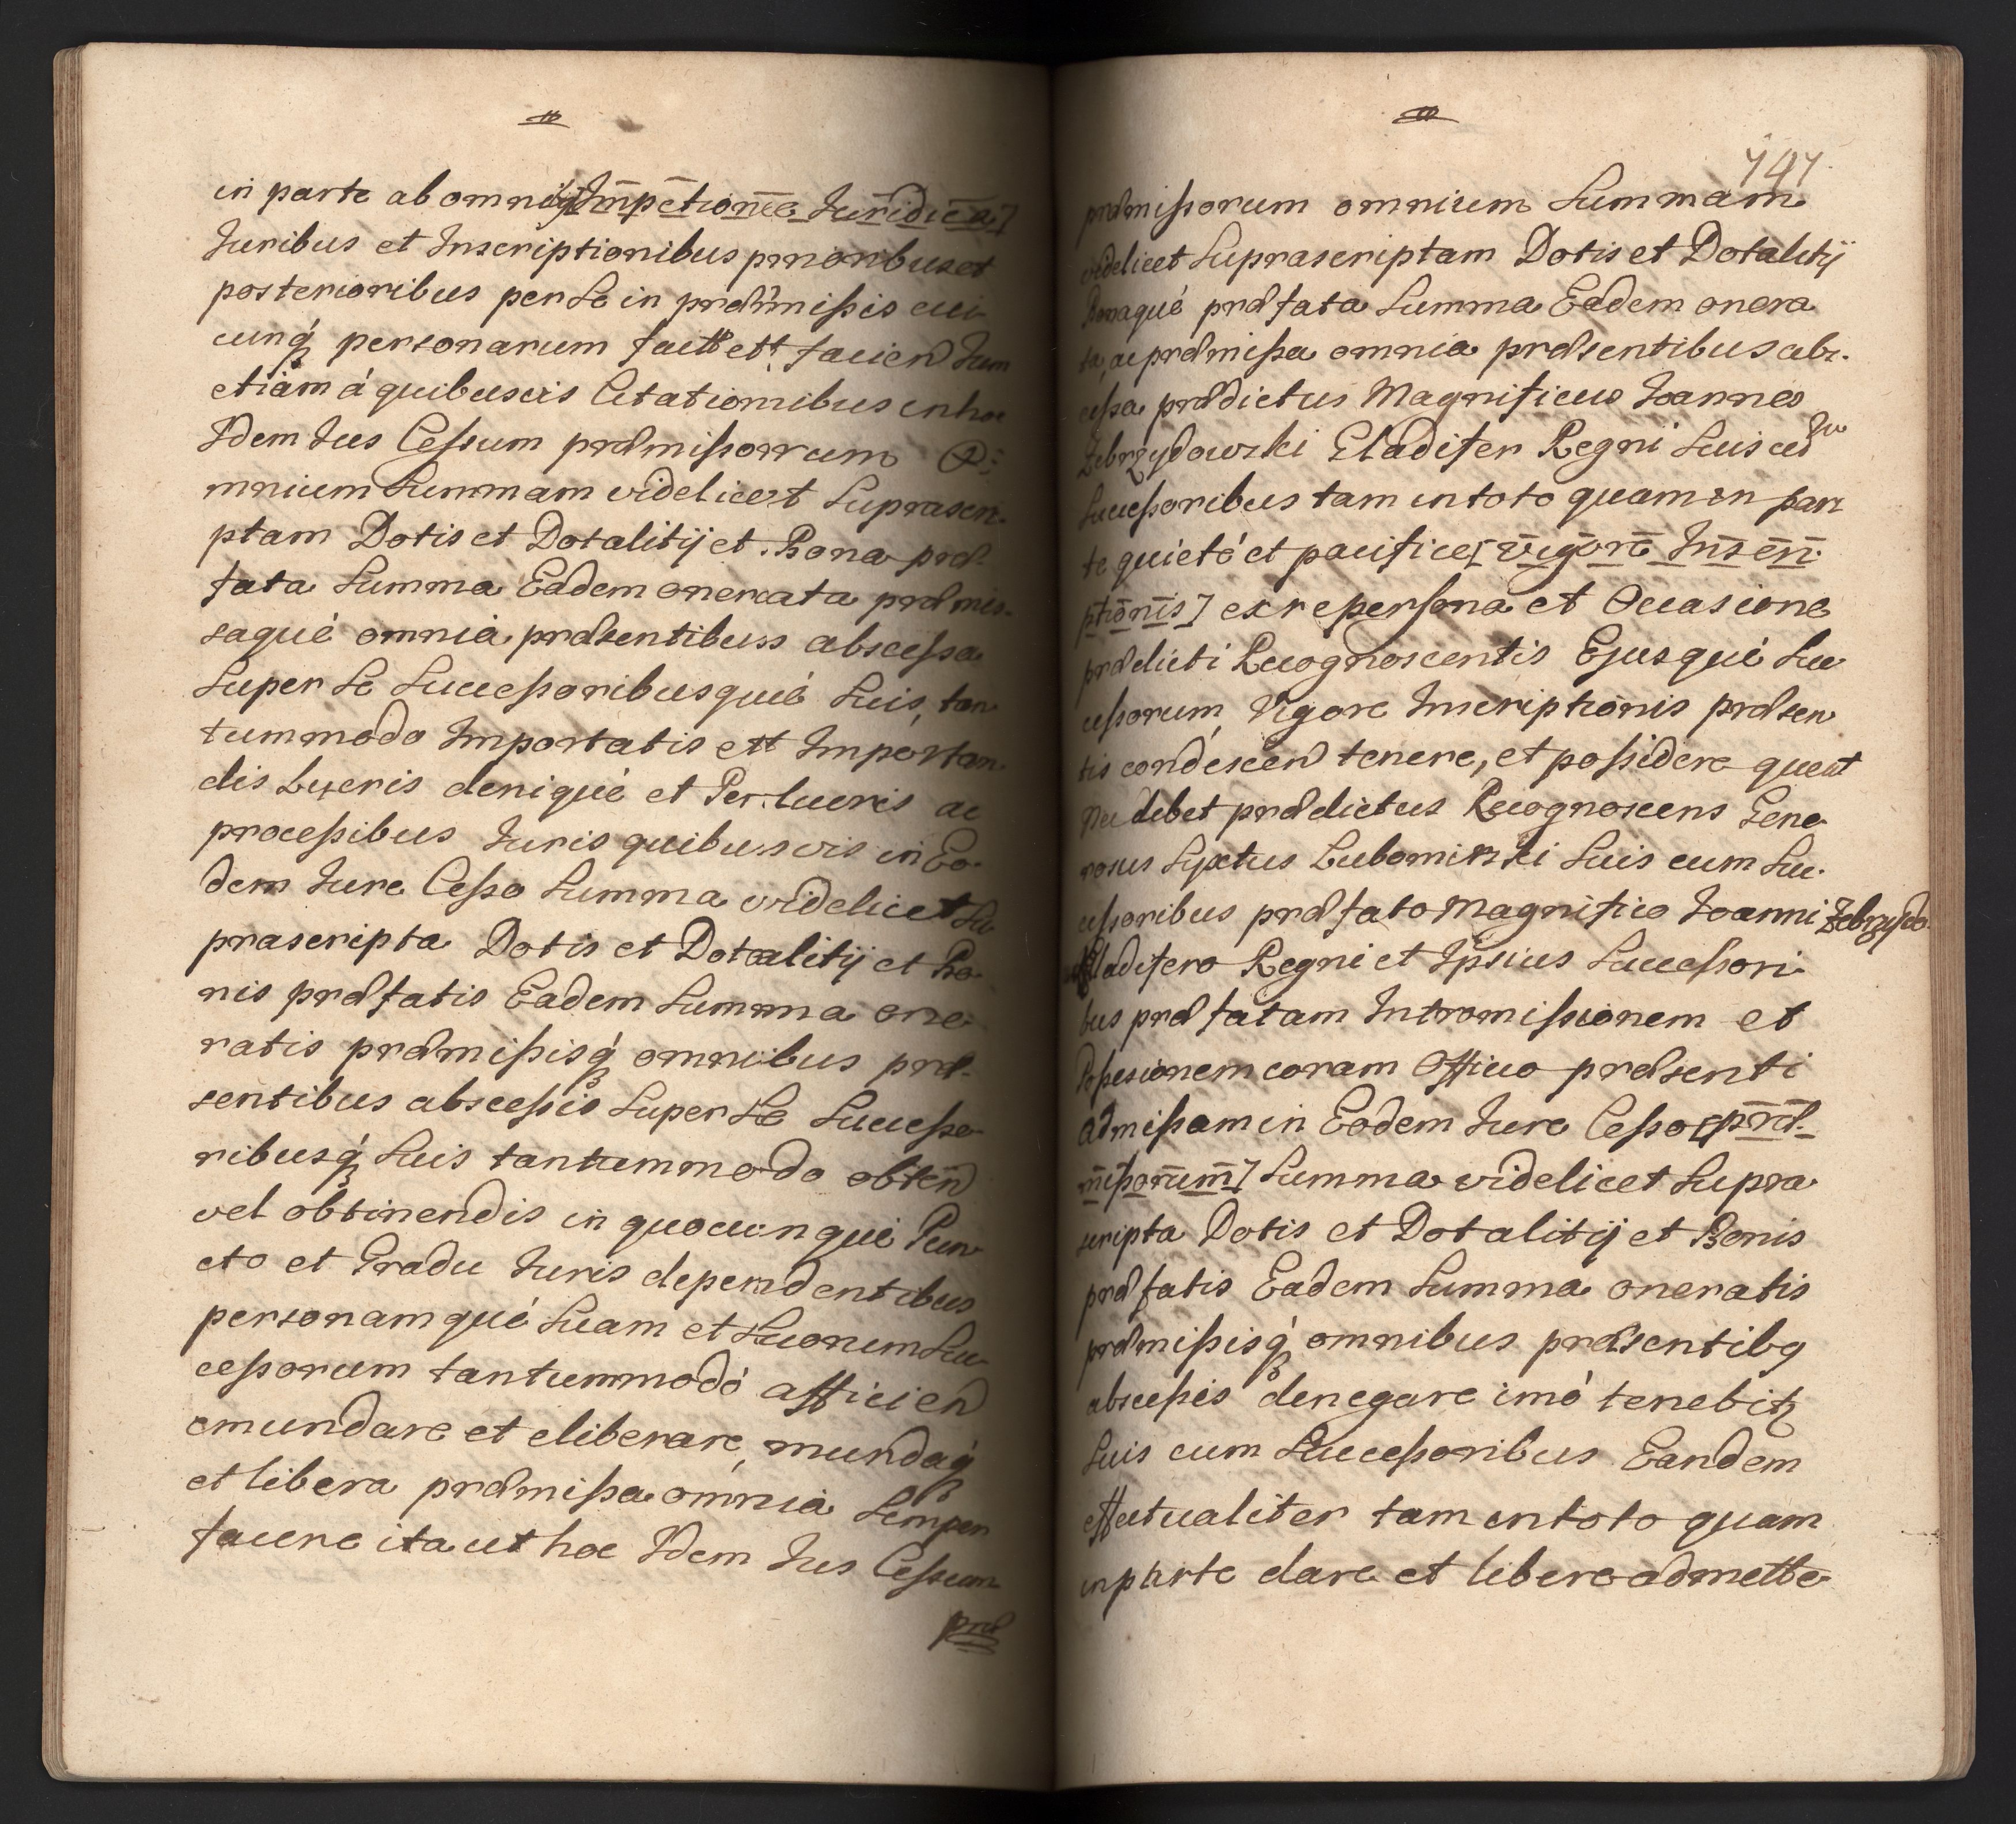 in parte ab omni [Impetione Juridica]
Juribus et Inscriptionibus prioribus et
posterioribus per Se in præmißis cui
cunq́ personarum fact et facien tum
etiam á quibusvis Citationibus in hoc
Idem Jus Ceßum præmißorum O-
mnium Summam videlicet Suprascri-
ptam Dotis et Dotalitij et Bona præ-
fata Summa Eadem onerata præmis-
saqué omnia præsentibus absceßa
Super Se Succeßoribusqué Suis, tan
tummodo Importatis et Importan
dis Lucris deniqué et Perlucris ac
proceßibus Juris quibusvis in Eo-
dem Jure Ceßo Summa videlicet Su
prascripta Dotis et Dotalitij et Bo-
nis præfatis Eadem Summa one-
ratis præmißisq́ omnibus præ-
sentibus absceßis Super Se Succeßo-
ribusq́ Suis tantummodo obten
vel obtinendis in quocunqué Pun
cto et Gradu Juris dependentibus
personamqué Suam et Suorum Suc
ceßorum tantummodó afficien
emundare et eliberare, mundaq́
et libera præmißa omnia Semper
facere ita ut hoc Idem Jus Ceßum
præ
741
præmißorum omnium Summam
videlicet Suprascriptam Dotis et Dotalitij
Bonaqué præfata Summa Eadem onera
ta, ac præmißa omnia præsentibus abs-
ceßa prædictus Magnificus Joannes
Zebrzydowski Eladifer Regni Suis cum
Succeßoribus tam in toto quam in par
te quieté et pacificé [vigore Inscri-
ptionis] ex re persona et Occasione
prædicti Recognoscentis Ejusqué Suc
ceßorum, Vigore Inscriptionis præsen
tis condescen tenere, et poßidere queat
nec debet prædictus Recognoscens Gene
rosus Sixtus Lubomirski Suis cum Suc-
ceßoribus præfato Magnifico Joanni Zebrzydo-
Eladifero Regni et Ipsius Succeßori-
bus præfatam Intromißionem et
Poßesionem coram Officio præsenti
admißam in Eodem Jure Ceßo [præ-
mißorum] Summa videlicet Supra
scripta Dotis et Dotalitij et Bonis
præfatis Eadem Summa oneratis
præmißisq́ omnibus præsentibq
absceßis denegare imó tenebitꝫ
Suis cum Succeßoribus Eandem
effectualiter tam in toto quam
in parte dare et libere admitte-